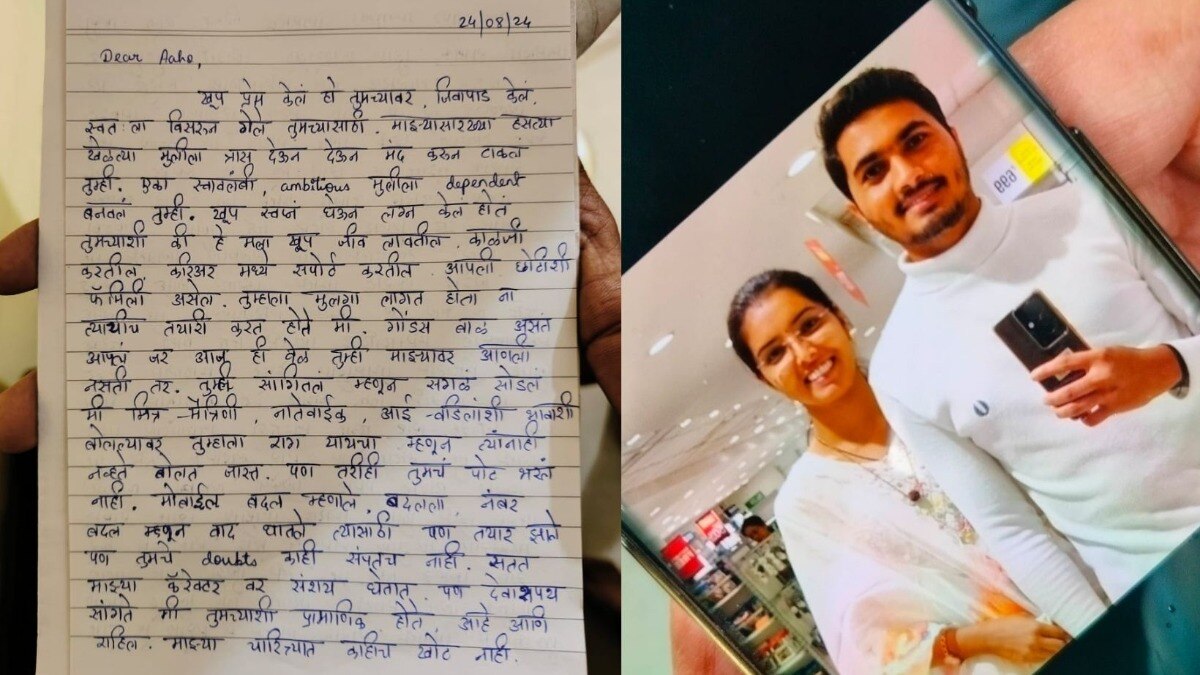 24/08/24
Dear Aaho,
खूप प्रेम केलं हो तुमच्यावर, जिवापाड केलं.
स्वतःला विसरून गेले तुमच्यासाठी. माझ्यासारख्या हसत्या
खेळत्या मुलीला त्रास देऊन देऊन मंद करून टाकलं
तुम्ही. एका स्वावलंबी, ambitious मुलीला dependent
बनवलं तुम्ही. खूप स्वप्नं घेऊन लग्न केलं होतं
तुमच्याशी की हे मला खूप जीव लावतील, काळजी
करतील, करिअर मध्ये सपोर्ट करतील. आपली छोटीशी
फॅमिली असेल. तुम्हाला मुलगा लागत होता ना
त्याचीच तयारी करत होते मी. गोंडस बाळं असतं
आपलं जर आज ही वेळ तुम्ही माझ्यावर आणली
नसती तर. तुम्ही सांगितलं म्हणून सगळं सोडलं
मी मित्र-मैत्रिणी, नातेवाईक, आई-वडिलांशी भावाशी
बोलल्यावर तुम्हाला राग यायचा म्हणून त्यांनाही
नव्हते बोलत जास्त. पण तरीही तुमचं पोट भरलं
नाही. मोबाईल बदल म्हणाले, बदलला, नंबर
बदल म्हणून वाद घातले त्यासाठी पण तयार झाले
पण तुमचे doubts काही संपतच नाही. सतत
माझ्या कॅरेक्टर वर संशय घेतात. पण देवाशपथ
सांगते मी तुमच्याशी प्रामाणिक होते, आहे आणि
राहिल. माझ्या चारित्र्यात काहीच खोट नाही.
999